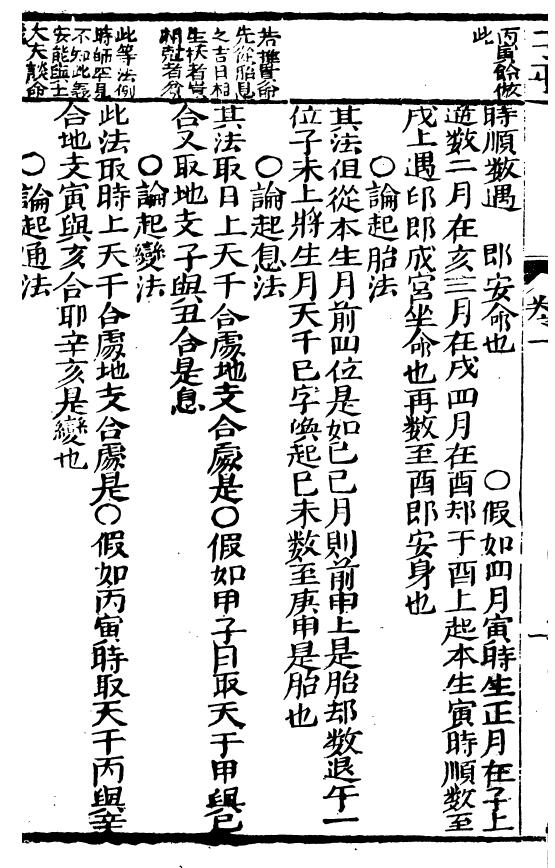 丙寅餘倣
此
時順數遇　卽安命也　○假如四月寅時生正月在子上
逆數二月在亥三月在戌四月在酉却于酉上起本生寅時順數至
戌上遇卯卽戌宮坐命也再數至酉卽安身也
○論起胎法
其法但從本生月前四位是如己巳月則前申上是胎却數退午一
位子未上將生月天干巳字喚起巳未數至庚申是胎也
若推貴命
先從胎息
之吉日相
生扶者貴
相尅者
○論起息法
其法取日上天干合處地支合處是○假如甲子日取天干甲與己
合又取地支子與丑合是息
○論起變法
此等法例
時師罕見
不知此義
安能與士
大夫談命
此法取時上天干合處地支合處是○假如丙寅時取天干丙與辛
合地支寅與亥合耶辛亥是變也
○論起通法
卷一